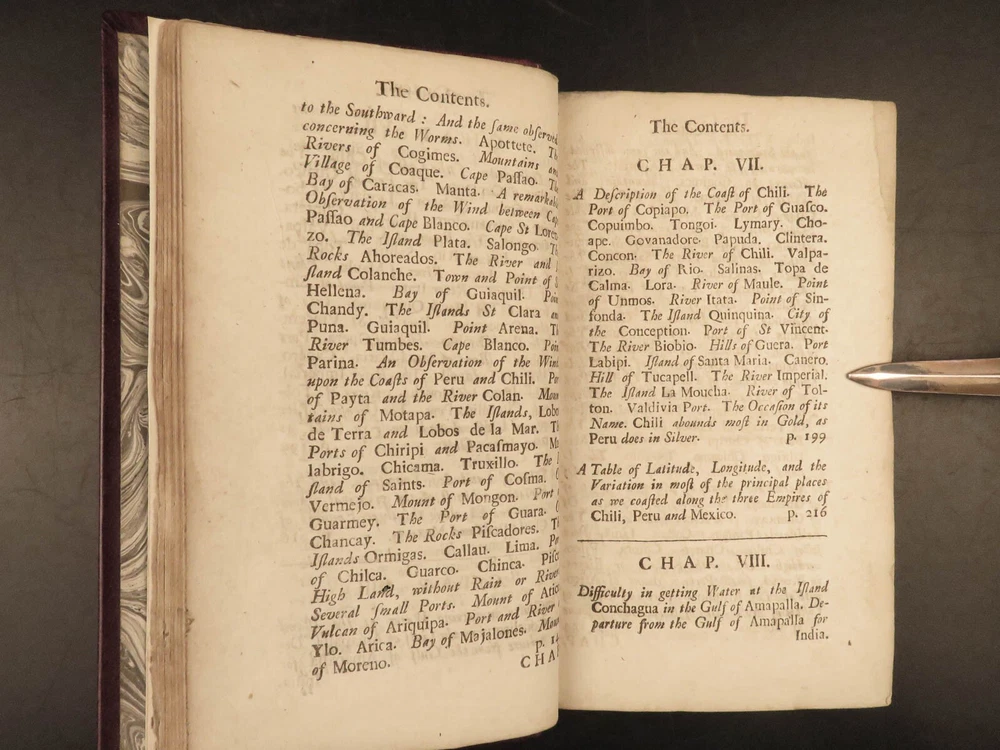 The Contents.
to the Southward : And the ſame obſerved
concerning the Worms. Apottete.
Rivers of Cogimes. Mountains
Village of Coaque. Cape Paſſao.
Bay of Caracas. Manta. A
Obſervation of the Wind between
Paſſao and Cape Blanco. Cape St
zo. The Iſland Plata. Salongo.
Rocks Ahoreados. The River and
ſland Colanche. Town and Point of
Hellena. Bay of Guiaquil.
Chandy. The Iſlands St Clara
Puna. Guiaquil. Point Arena.
River Tumbes. Cape Blanco.
Parina. An Obſervation of the
upon the Coaſts of Peru and Chili.
of Payta and the River Colan.
tains of Motapa. The Iſlands,
de Terra and Lobos de la Mar.
Ports of Chiripi and Pacaſmayo.
labrigo. Chicama. Truxillo. The
ſland of Saints. Port of Coſma.
Vermejo. Mount of Mongon. Port
Guarmey. The Port of Guara.
Chancay. The Rocks Piſcadores.
Iſlands Ormigas. Callau. Lima.
of Chilca. Guarco. Chinca.
High Land, without Rain or
Several ſmall Ports. Mount of
Vulcan of Ariquipa. Port and River
Ylo. Arica. Bay of Majalones.
of Moreno. p.
The Contents.
CHAP. VII.
A Deſcription of the Coaſt of Chili. The
Port of Copiapo. The Port of Guaſco.
Copuimbo. Tongoi. Lymary. Cho-
ape. Govanadore. Papuda. Clintera.
Concon. The River of Chili. Valpa-
rizo. Bay of Rio. Salinas. Topa de
Calma. Lora. River of Maule. Point
of Unmos. River Itata. Point of Sin-
fonda. The Iſland Quinquina. City of
the Conception. Port of St Vincent.
The River Biobio. Hills of Guera. Port
Labipi. Iſland of Santa Maria. Canero.
Hill of Tucapell. The River Imperial.
The Iſland La Moucha. River of Tol-
ton. Valdivia Port. The Occaſion of its
Name. Chili abounds moſt in Gold, as
Peru does in Silver. p. 199
A Table of Latitude, Longitude, and the
Variation in moſt of the principal places
as we coaſted along the three Empires of
Chili, Peru and Mexico. p. 216
CHAP. VIII.
Difficulty in getting Water at the Iſland
Conchagua in the Gulf of Amapalla. De-
parture from the Gulf of Amapalla for
India.